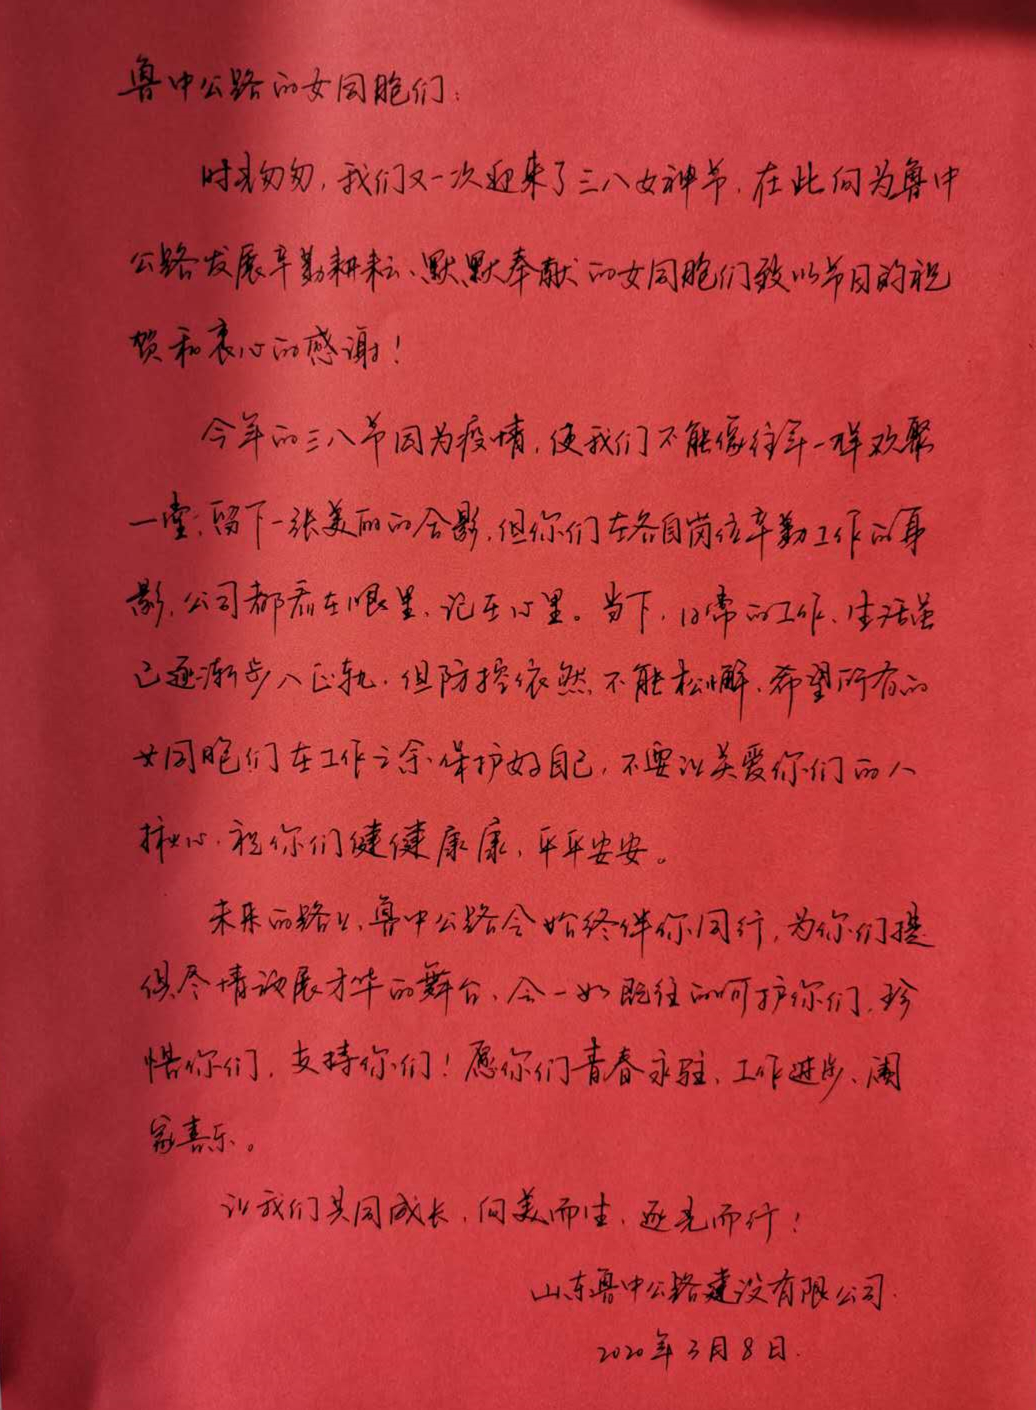 鲁中公路的女同胞们:
时光匆匆,我们又一次迎来了三八女神节,在此向为鲁中
公路发展辛勤耕耘、默默奉献的女同胞们致以节日的祝
贺和衷心的感谢!
今年的三八节因为疫情,使我们不能像往年一样欢聚
一堂,留下一张美丽的合影,但你们在各自岗位辛勤工作的身
影,公司都看在眼里、记在心里。当下,日常的工作、生活虽
已逐渐步入正轨,但防控依然不能松懈,希望所有的
女同胞们在工作之余保护好自己,不要让关爱你们的人
担心,祝你们健健康康,平平安安。
未来的路上,鲁中公路会始终伴你同行,为你们提
供尽情施展才华的舞台,会一如既往的呵护你们,珍
惜你们,支持你们!愿你们青春永驻、工作进步、阖
家喜乐。
让我们共同成长,向美而生,逐光而行!
山东鲁中公路建设有限公司
2020年3月8日.